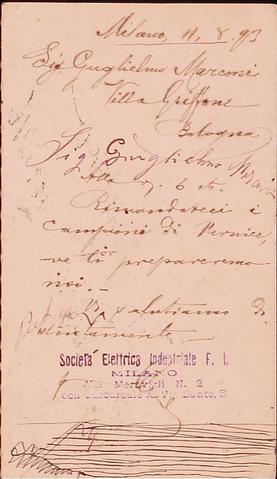 Milano, 11, 8. 93
Sig. Guglielmo Marconi
Villa Griffone
Bologna
Sig Guglielmo Marconi
Alla 6
Rimandateci i
Campioni di Vernice,
ve li prepareremo
noi.-
Vi salutiamo di
stintamente
Società Elettrica Industriale F. I.
MILANO
Via N. 2
con V. Dante, 5